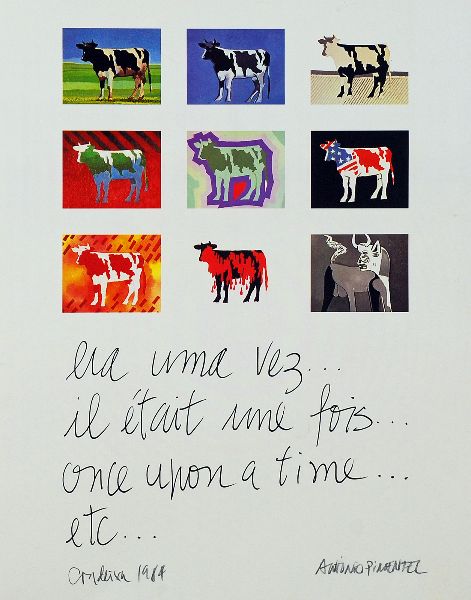 era uma vez...
il était une fois...
once upon a time...
etc...
1984
António Pimentel